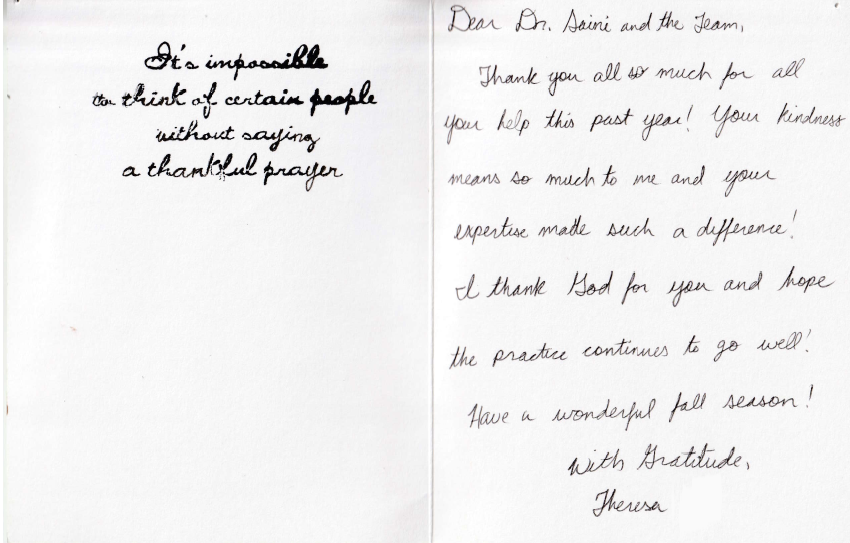 It's impossible
to think of certain people
without saying
a thankful prayer
Dear Dr. Saini and the Team,
Thank you all so much for all
your help this past year! Your kindness
means so much to me and your
expertise made such a difference!
I thank God for you and hope
the practice continues to go well!
Have a wonderful fall season!
With Gratitude,
Theresa